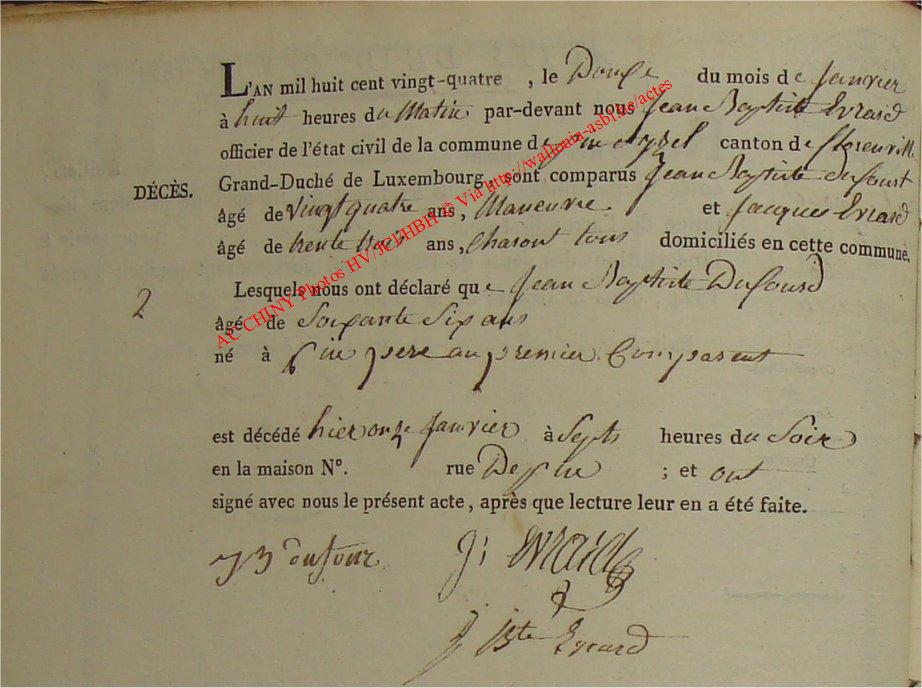 L'AN mil huit cent vingt-quatre , le Douze du mois de Janvier
à huit heures du Matin par-devant nous Jean Baptiste Evrard
officier de l'état civil de la commune de canton de florenvill
DÉCÈS. Grand-Duché de Luxembourg, sont comparus Jean Baptiste dufourt
âgé de vingt quatre ans, Maneuvre et Jacques Evrard
âgé de trente trois ans, Charont tous domiciliés en cette commune,
Lesquels nous ont déclaré que Jean Baptiste Dufourd
2
âgé de Soixante Six ans
né à pin pere au premier Comparent
est décédé hier onze Janvier à Septs heures du Soir
en la maison N°. rue De pin ; et ont
signé avec nous le présent acte, après que lecture leur en a été faite.
JB dufour J: Evrard
J Bte Evrard
AC CHINY Photos HV/JCI/HBH © Via http://wallonia-asbl.be/actes